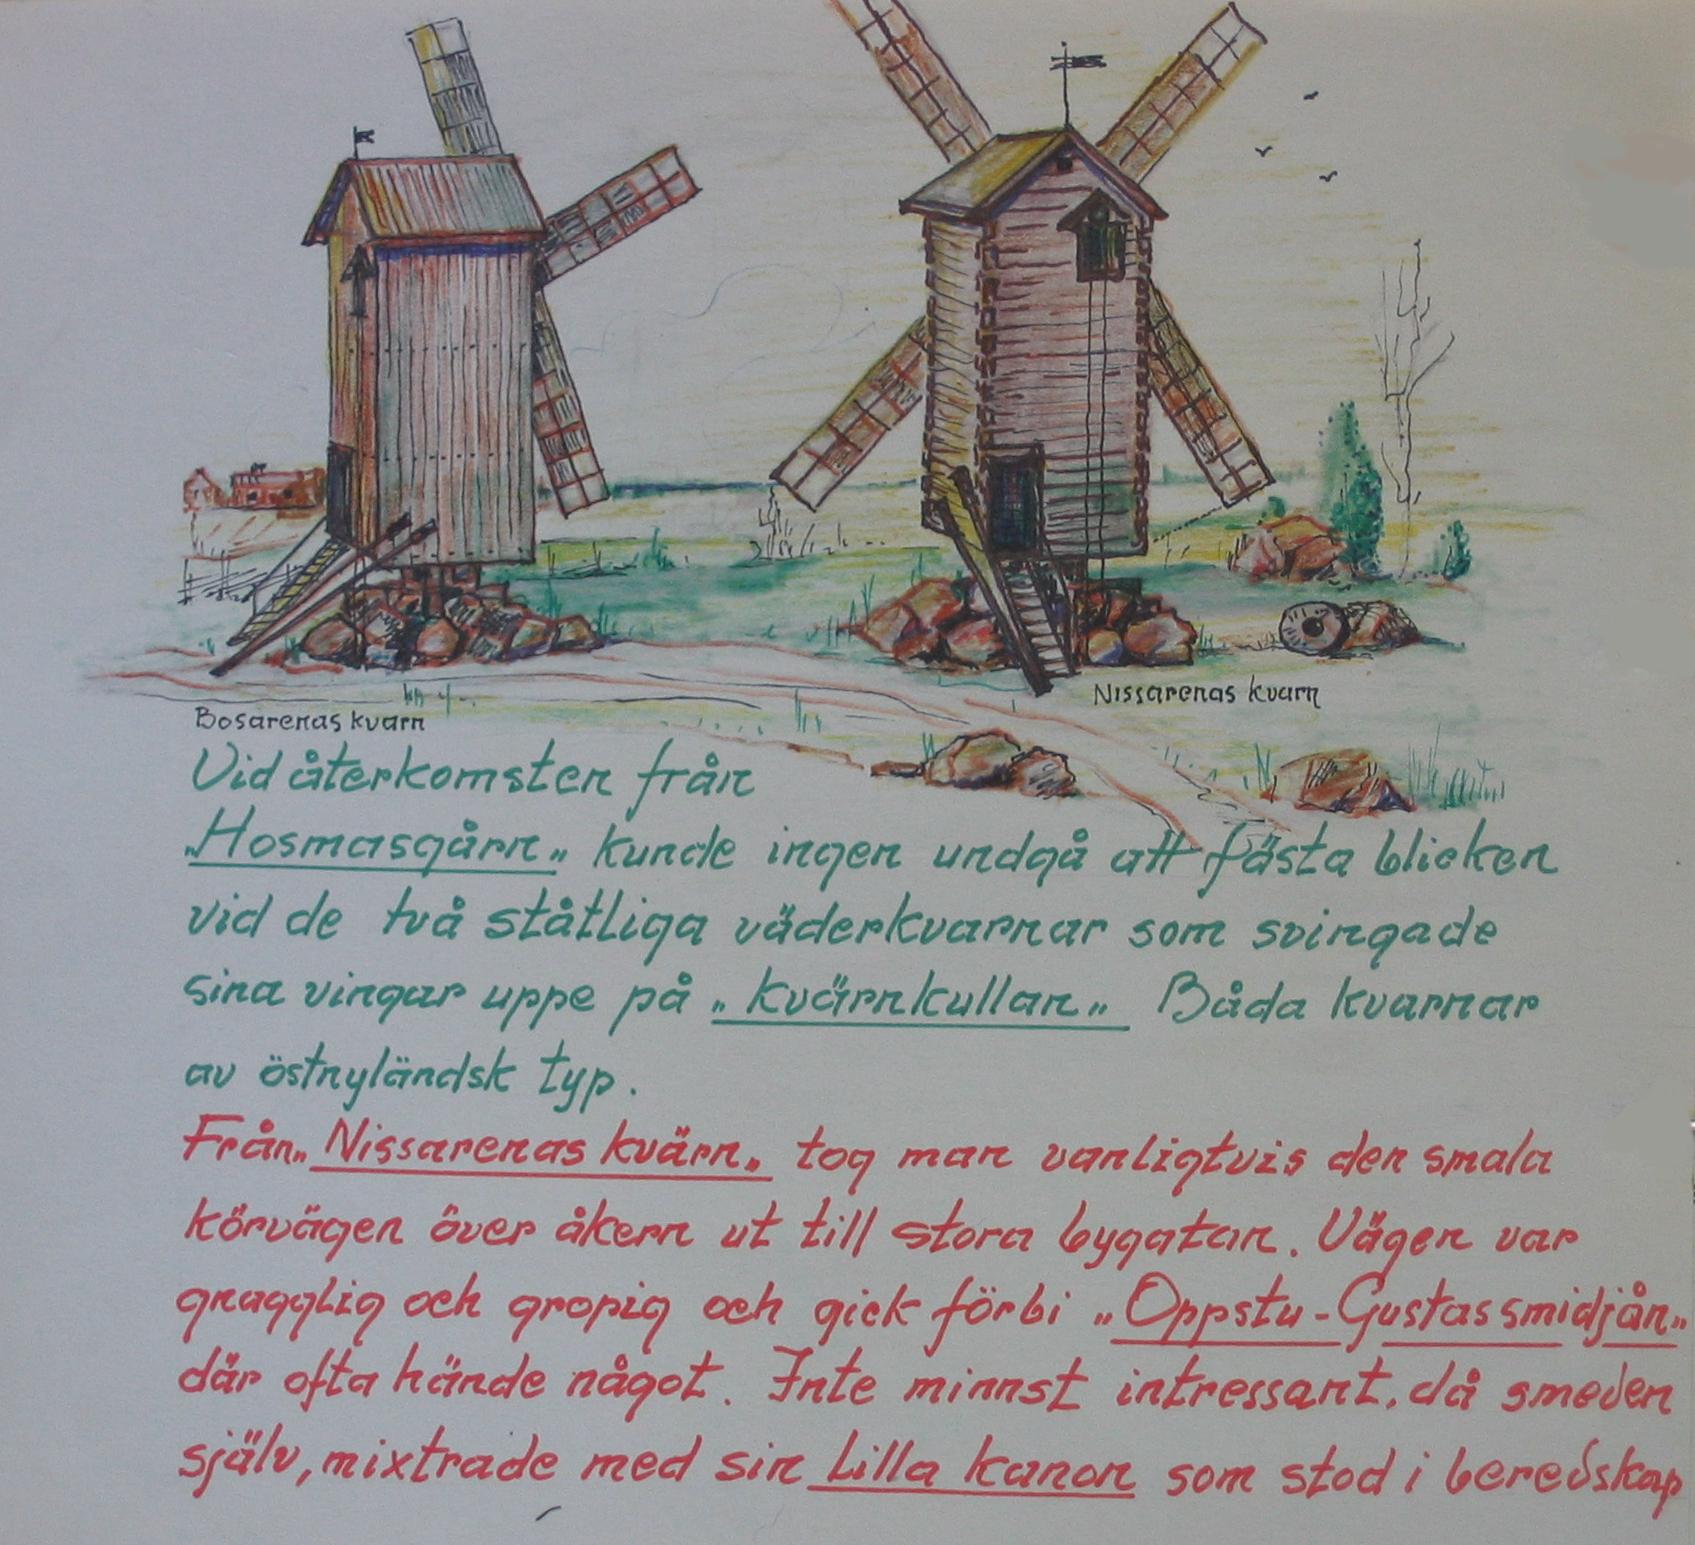 Nissarenas kvarn
Bosarenas kvarn
Vid återkomsten från
„Hosmasgårn„ kunde ingen undgå att fästa blicken
vid de två ståtliga väderkvarnar som svingade
sina vingar uppe på „kvärnkullan„ Båda kvarnar
av östnyländsk typ.
Från„ Nissarenas kvärn„ tog man vanligtvis den smala
körvägen över åkern ut till stora bygatan. Vägen var
gnagglig och gropig och gick förbi „Oppstu-Gustassmidjån„
där ofta hände något. Inte minnst intressant, då smeden
själv, mixtrade med sin Lilla kanon som stod i beredskap